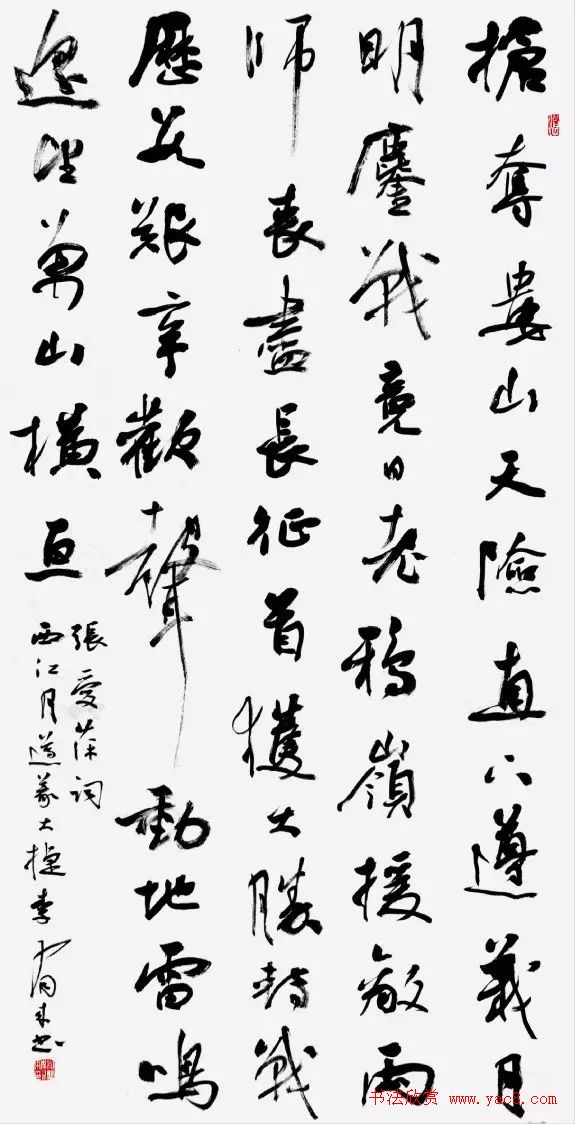 搶奪婁山天險直下遵義月
明鏖戰竟日老鴉嶺援敵兩
師喪盡長征首獲大勝轉戰
歷艱辛歡聲動地雷鳴
遙望萬山橫亘
張愛萍詞
西江月遵義大捷李
书法欣赏 www.yac8.com